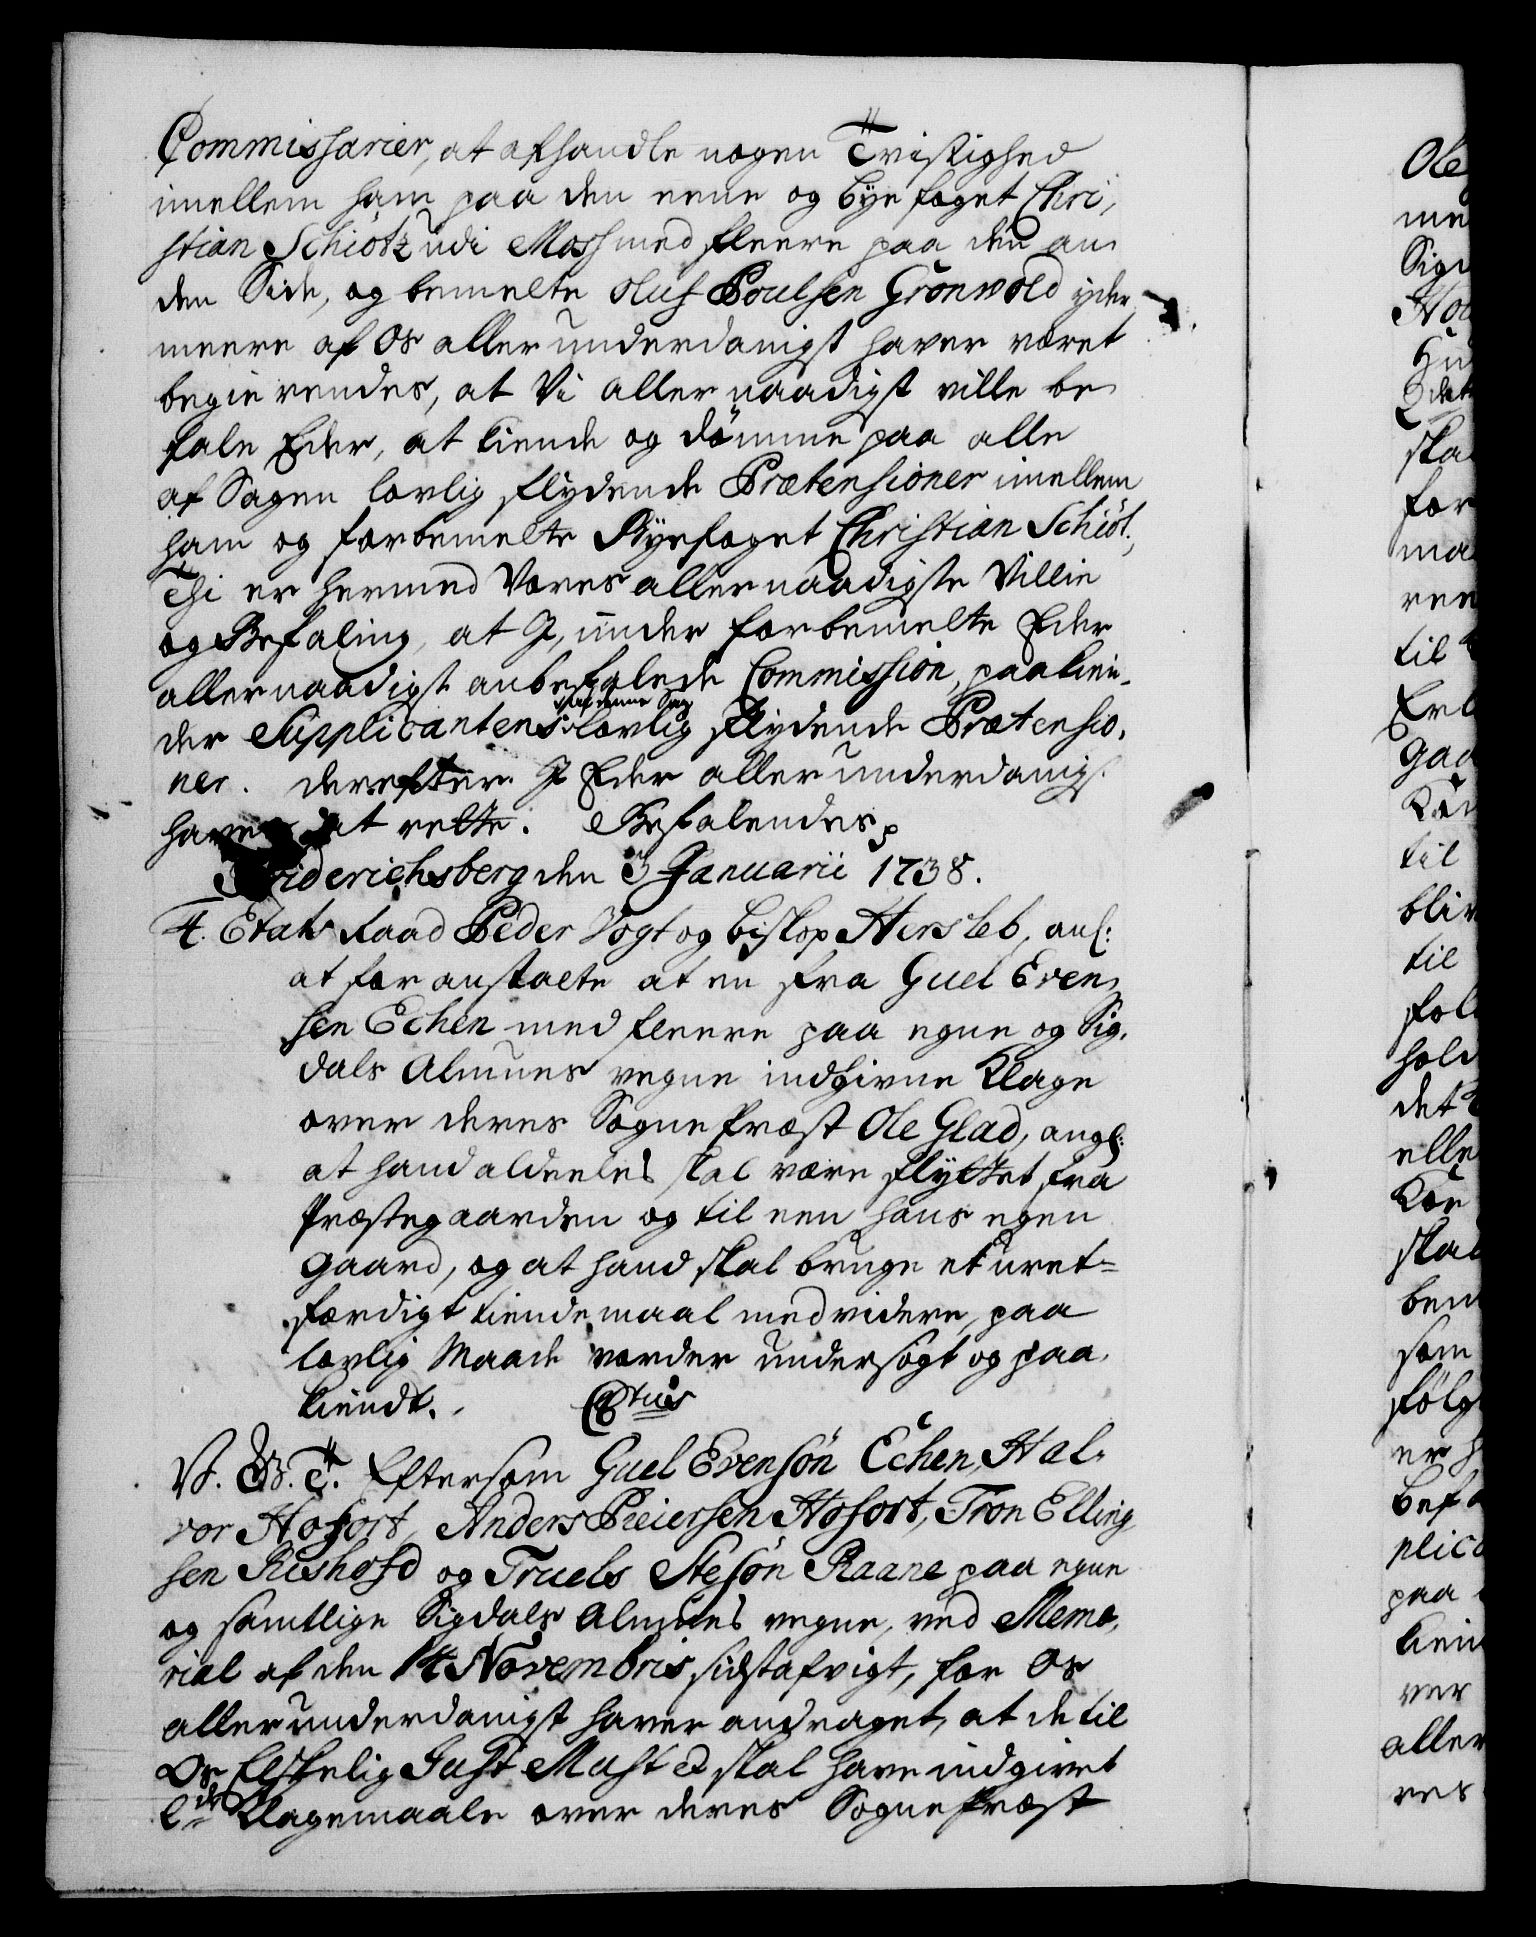 Commissarier, at afhandle nogen Tvistighed
imellem ham paa den eene og byefoget Chri,
stian Schiøtz udi Moss med fleere paa den an
den Side, og bemelte Oluf Poulsen Grønwold yder
meere af Os allerunderdanigst haver været
begierendes, at Vi allernaadigst ville be
fale Eder, at kiende og dømme paa alle
af Sagen lovlig flydende Prætensioner imellem
ham og forbemelte Byefoget Christian Schiøt,
Thi er hermed Vores allernaadigste Villie
og Befaling, at I, under forbemelte Eder
allernaadigst anbefalede Commission, paakien,
der Supplicantens af denne Sag lovlig flydende Prætensio,
ner. derefter I Eder allerunderdanigst
have at rette. Befalendes
Friderichsberg den 3 Januarii 1738.
4. Etats Raad Peder Vogt og biskop Hersleb, anl:
at foranstalte at en fra Guel Even,
sen Echen med fleere paa egne og Sig,
dals Almues vegne indgivne Klage
over deres Sognepræst Ole Glad, angl:
at hand aldeeles skal være flyttet fra
Præstegaarden og til een hans egen
Gaard, og at hand skal bruge et uret=
færdigt tiendemaal med videre, paa
lovlig Maade vorder undersøgt og paa,
kiendt.
V. G. T. Eftersom Guel Evensøn Echen, Hal,
vor Hofort, Anders Peiersen Hofort, Tron Elling
sen og Truels Stesøn Raane paa egne
og samtlige Sigdals Almues vegne, ved Memo,
rial af den 14 Novembris sidstafvigt, for Os
allerunderdanigst haver andraget, at de til
Os Elskelig Just Must skal have indgivet
Klagemaale over deres Sognepræst
Ole
me
Sig
til
Gad
til
bliv
til
det
elle
skal
ben
som
følg
er h
befa
plica
paa
kien
ver
aller
res